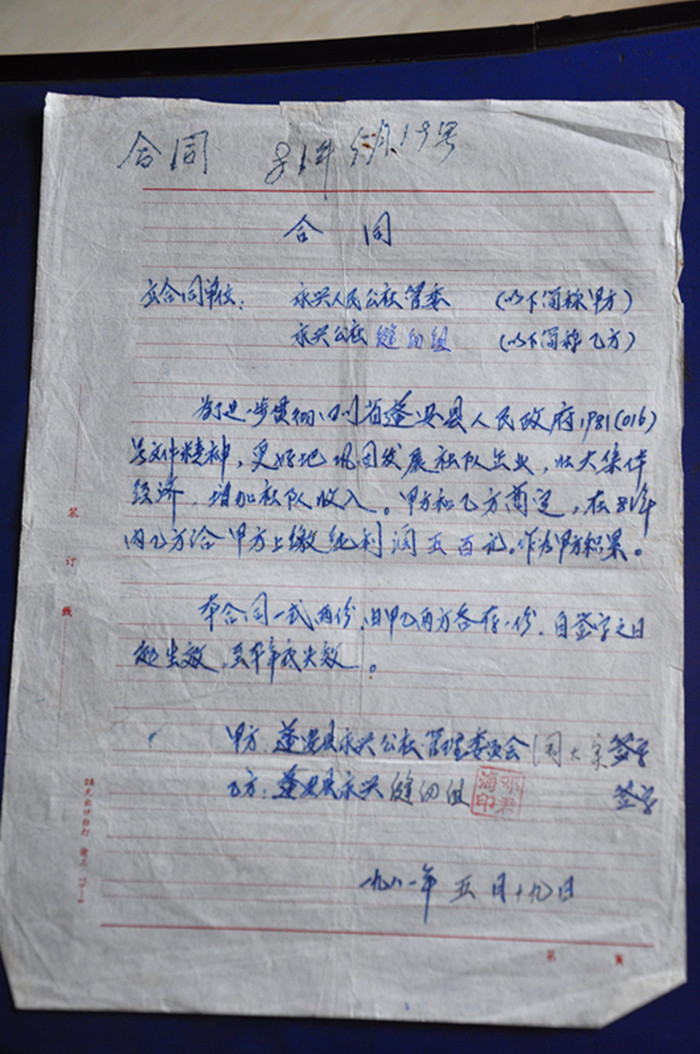 合同 81年5月19号
合同
立合同单位: 永兴人民公社管委 (以下简称甲方)
永兴公社缝纫组 (以下简称乙方)
为了进一步贯彻四川省蓬安县人民政府1981(016)
号文件精神,更好地巩固发展社队企业,壮大集体
经济,增加社队收入。甲方和乙方商定,在81年
内乙方给甲方上缴纯利润五百元。作为甲方积累。
本合同一式两份,由甲乙两方各存一份,自签字之日
起生效,至年底失效。
甲方:蓬安县永兴公社管理委员会 签字
乙方:蓬安县永兴缝纫组 签字
一九八一年五月十九日
装订线
第 页